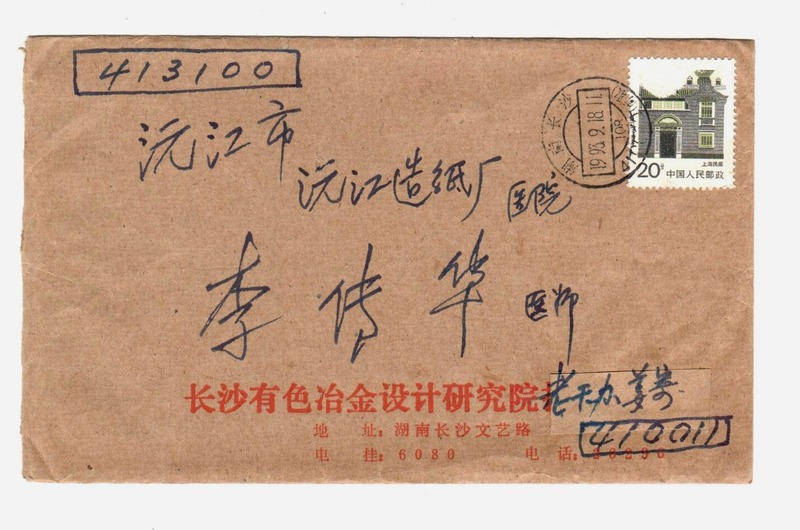 413100
湖南长沙
1995.9.18.11
上海民居
20分 中国人民邮政
沅江市
沅江造纸厂 医院
李传华 医师
长沙有色冶金设计研究院
老干办 姜寄
地 址:湖南长沙文艺路
410011
电 挂:6080 电 话: